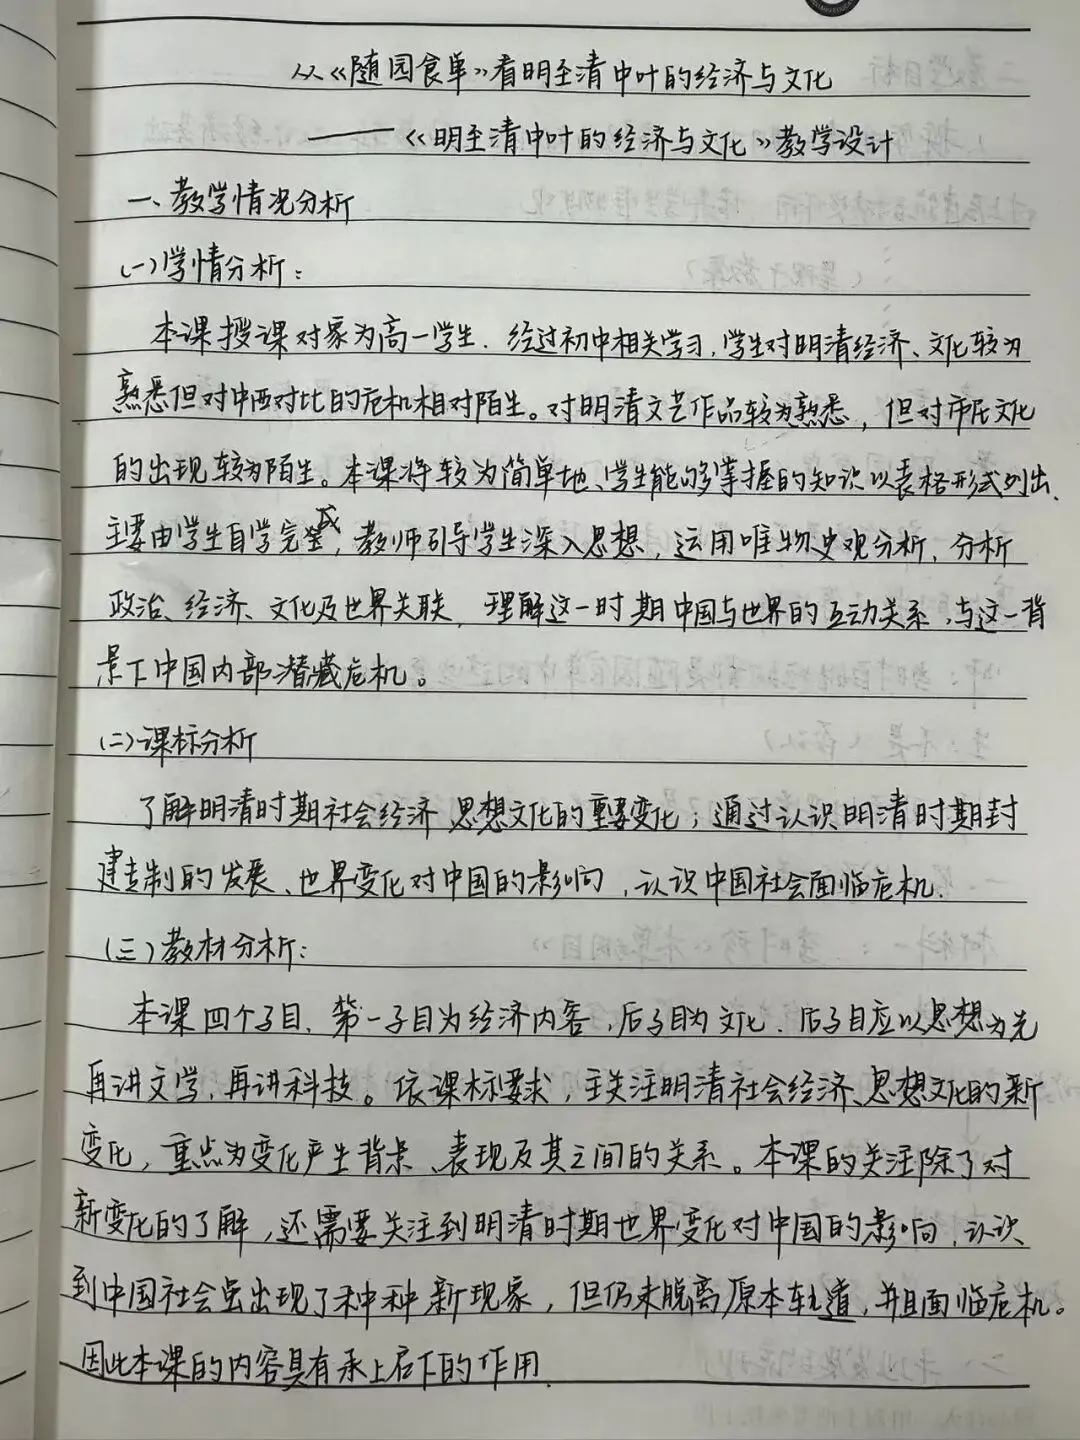 从《随园食单》看明至清中叶的经济与文化
——《明至清中叶的经济与文化》教学设计
一、教学情况分析
(一)学情分析:
本课授课对象为高一学生.经过初中相关学习,学生对明清经济、文化较为
熟悉但对中西对比的危机相对陌生。对明清文艺作品较为熟悉,但对市民文化
的出现较为陌生。本课将较为简单地、学生能够掌握的知识以表格形式列出.
主要由学生自学完成,教师引导学生深入思想,运用唯物史观分析,分析
政治、经济、文化及世界关联,理解这一时期中国与世界的互动关系,与这一背
景下中国内部潜藏危机。
(二)课标分析
了解明清时期社会经济、思想文化的重要变化;通过认识明清时期封
建专制的发展、世界变化对中国的影响,认识中国社会面临危机.
(三)教材分析:
本课四个子目,第一子目为经济内容,后子目为文化.后子目应以思想为先
再讲文学,再讲科技。依课标要求,主关注明清社会经济、思想文化的新
变化,重点为变化产生背景、表现及其之间的关系。本课的关注除了对
新变化的了解,还需要关注到明清时期世界变化对中国的影响,认识
到中国社会虽出现了种种新现象,但仍未脱离原本轨道,并且面临危机。
因此本课的内容具有承上启下的作用.